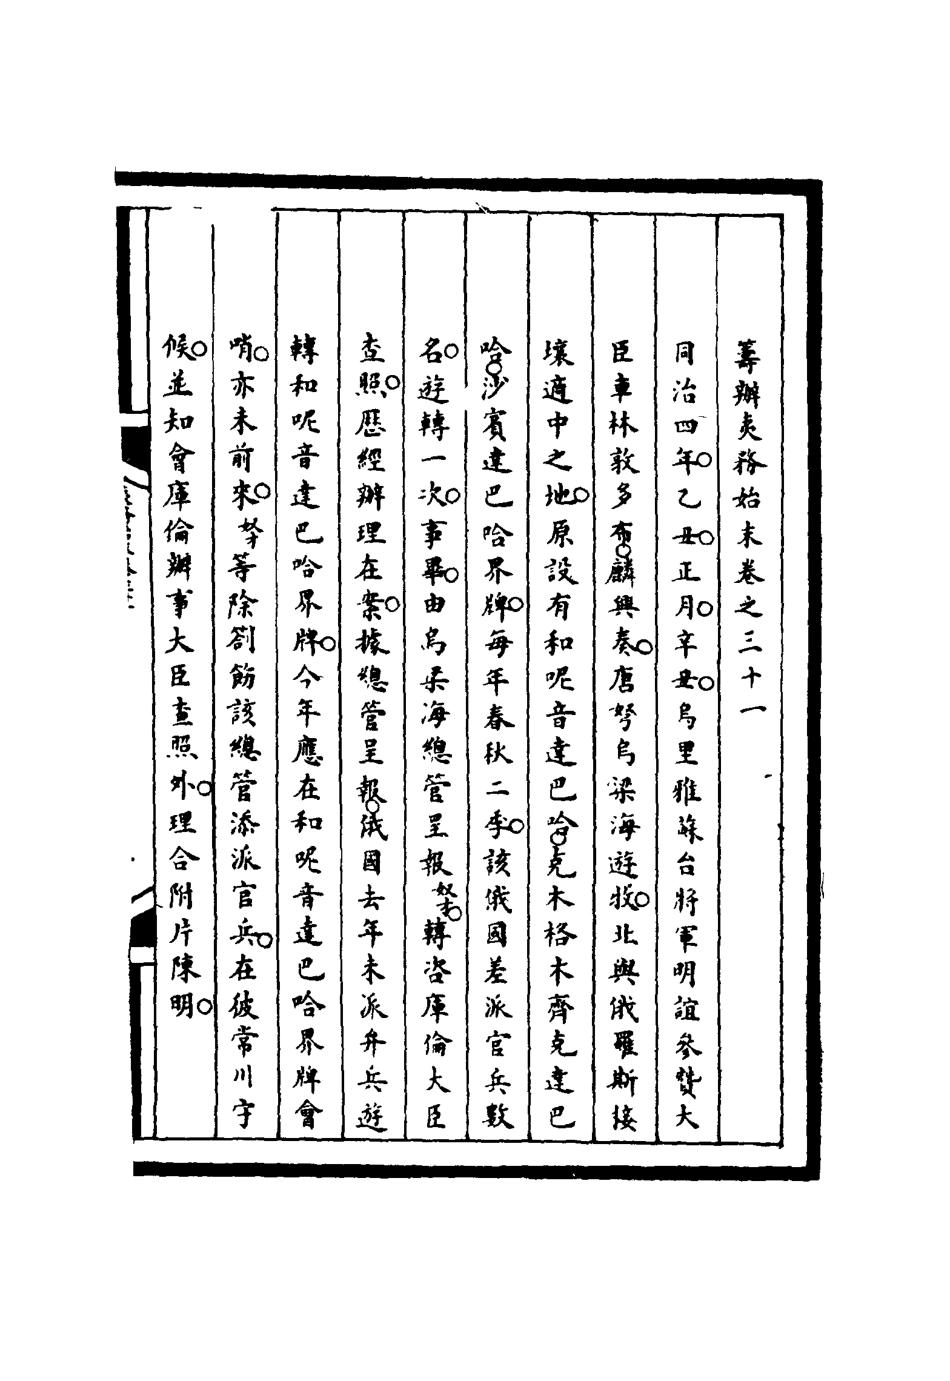 籌辦夷務始末卷之三十一
同治四年。乙丑。正月。辛丑。烏里雅蘇台將軍明誼參贊大
臣車林敦多布。麟興奏。唐努烏梁海遊牧。北與俄羅斯接
壤適中之地。原設有和呢音達巴哈。克木格木齊克達巴
哈。沙賓達巴哈界牌。每年春秋二季。該俄國差派官兵數
名。遊轉一次。事畢。由烏梁海總管呈報奴才。轉咨庫倫大臣
查照。歷經辦理在案。據總管呈報。俄國去年未派弁兵遊
轉和呢音達巴哈界牌。今年應在和呢音達巴哈界牌會
哨。亦未前來。奴才等除劄飭該總管添派官兵。在彼常川守
候。並知會庫倫辦事大臣查照外。理合附片陳明。